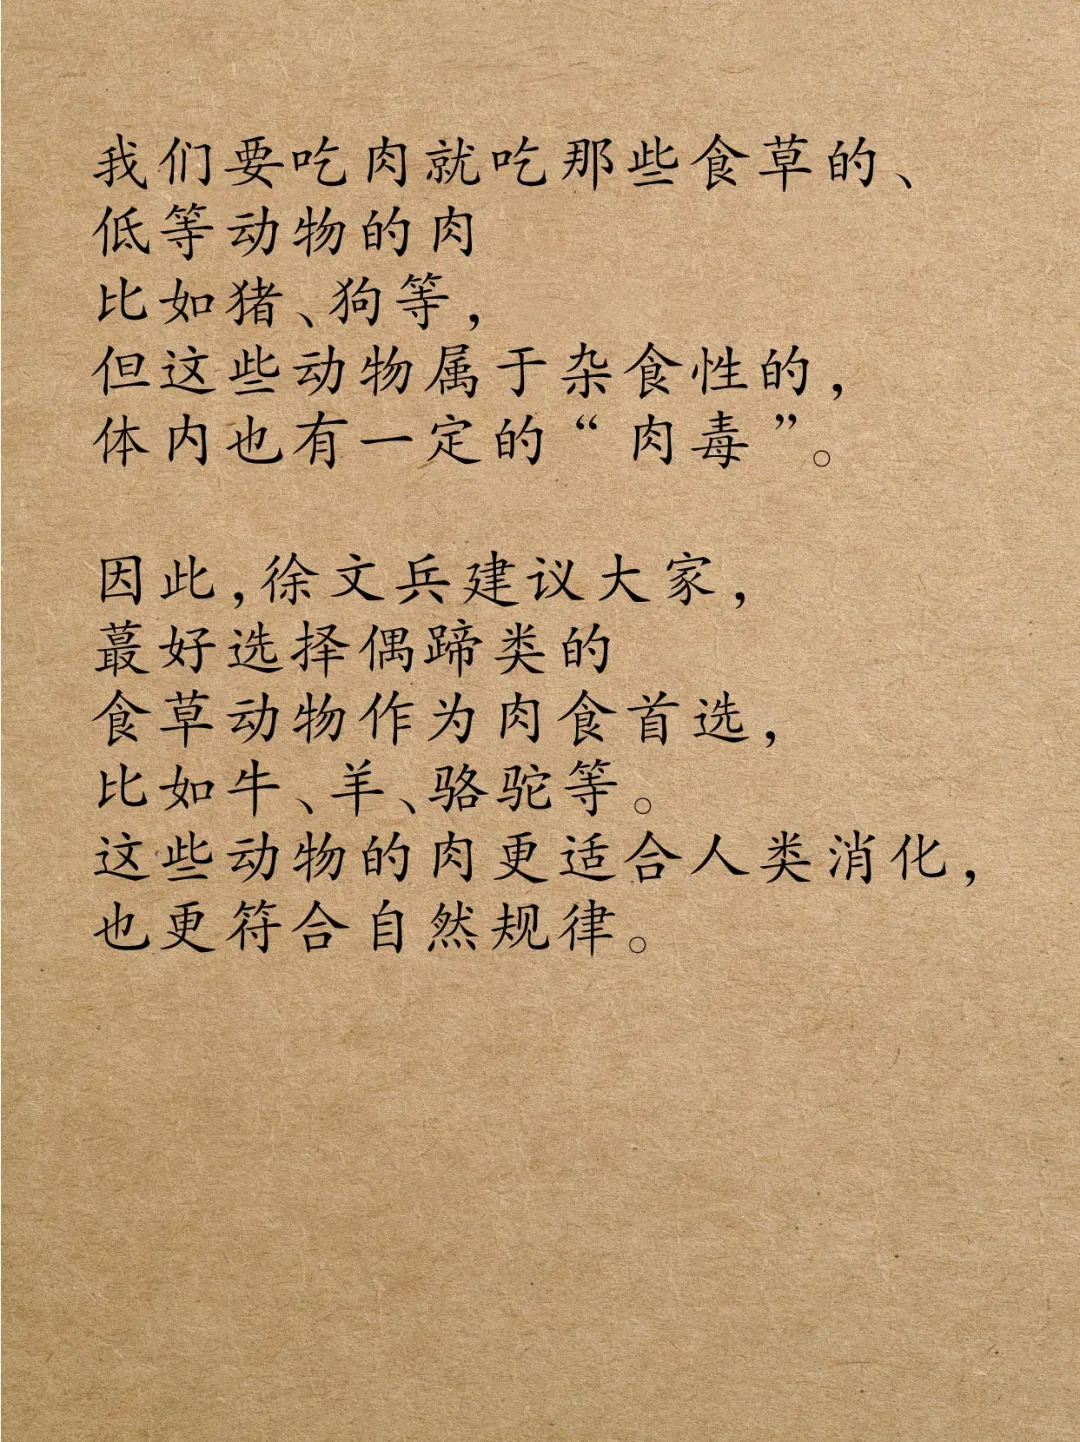 我们要吃肉就吃那些食草的、
低等动物的肉
比如猪、狗等，
但这些动物属于杂食性的，
体内也有一定的“肉毒”。
因此，徐文兵建议大家，
蕞好选择偶蹄类的
食草动物作为肉食首选，
比如牛、羊、骆驼等。
这些动物的肉更适合人类消化，
也更符合自然规律。